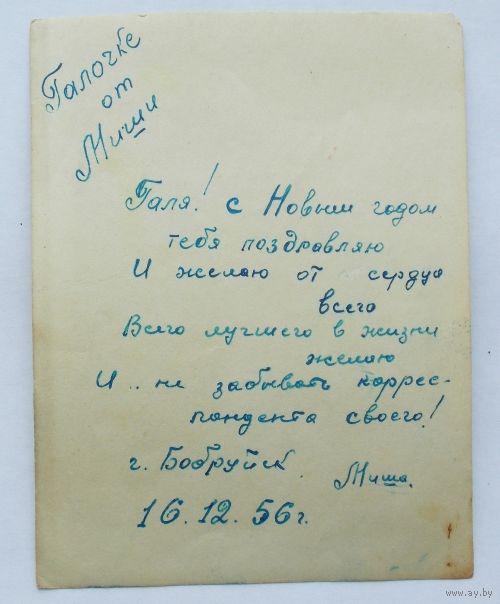 Галочке
от
Миши
Галя! с Новым годом
тебя поздравляю
И желаю от сердца
всего
Всего лучшего в жизни
желаю
И .. не забывать коррес-
пондента своего!
г. Бобруйск.
Миша.
16.12.56г.
www.ay.by